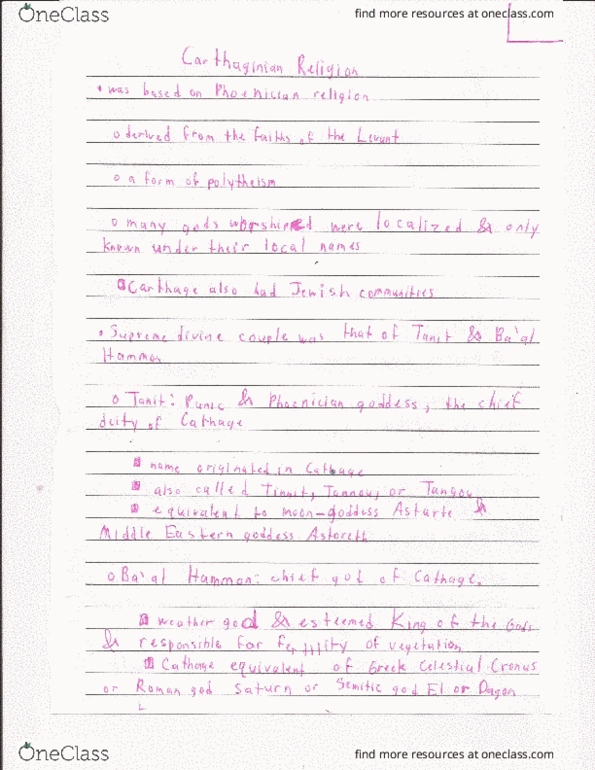 OneClass
find more resources at oneclass.com
Carthaginian Religion
• was based on Phoenician religion
o derived from the faiths of the Levant
o a form of polytheism
o many gods worshipped were localized & only
known under their local names
Carthage also had Jewish communities
• Supreme divine couple was that of Tanit & Ba'al
Hammon
o Tanit: Punic & Phoenician goddess, the chief
deity of Cathage
name originated in Cathage
also called Tinnit, Tannou, or Tangou
equivalent to moon-goddess Astarte &
Middle Eastern goddess Astoreth
o Ba'al Hammon: chief god of Cathage.
weather god & esteemed King of the Gods
& responsible for fertility of vegetation
Cathage equivalent of Greek Celestial Cronus
or Roman god Saturn or Semitic god El or Dagon
OneClass
find more resources at oneclass.com